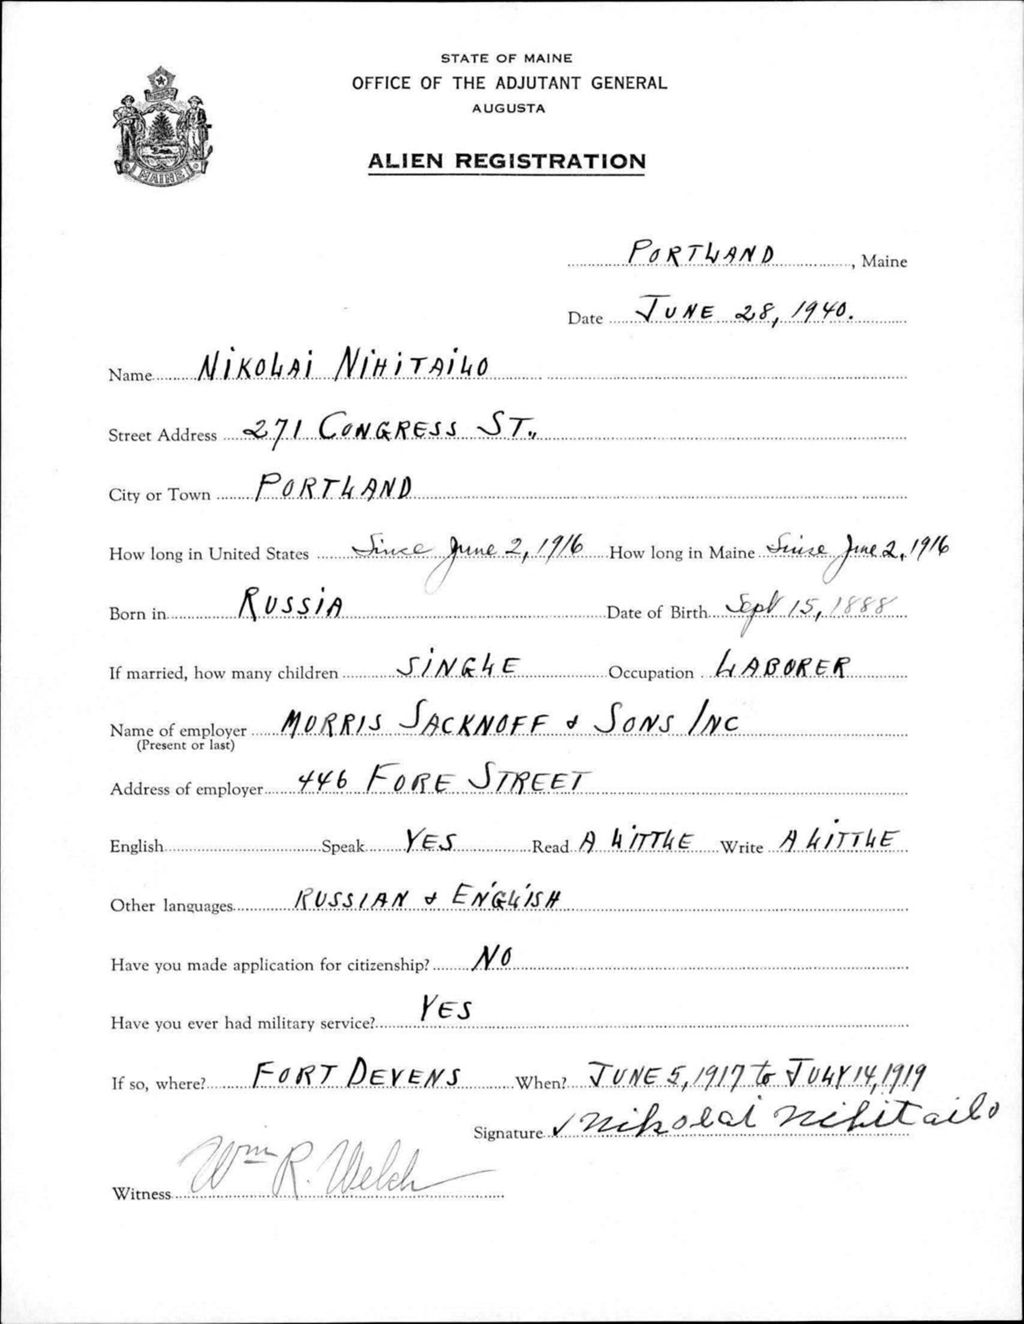 STATE OF MAINE
OFFICE OF THE ADJUTANT GENERAL
AUGUSTA
MAINE
ALIEN REGISTRATION
PORTLAND, Maine
Date JUNE 28, 1940.
Name NIKOLAI NIHITAILO
Street Address 271 CONGRESS ST.,
City or Town PORTLAND
How long in United States Since June 2, 1916 How long in Maine Since June 2, 1916
Born in RUSSIA Date of Birth Sept 15, 1888
If married, how many children SINGLE Occupation LABORER
Name of employer MORRIS SACKNOFF & SONS INC
(Present or last)
Address of employer 446 FORE STREET
English Speak YES Read A LITTLE Write A LITTLE
Other languages RUSSIAN & ENGLISH
Have you made application for citizenship? NO
Have you ever had military service? YES
If so, where? FORT DEVENS When? JUNE 5, 1917 to JULY 14, 1919
Signature Nikolai Nihitailo
Witness Wm R. Welch